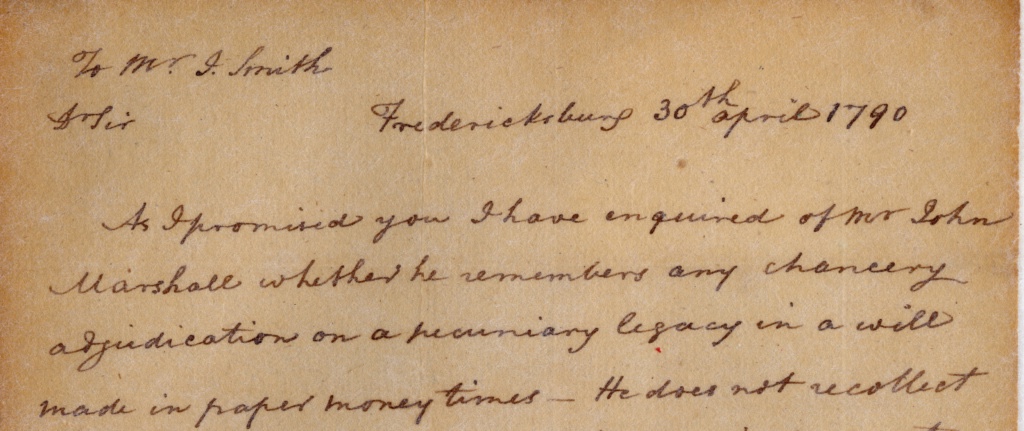 To Mr. I. Smith
Dr Sir Fredericksburg 30th april 1790
As I promised you I have enquired of Mr John
Marshall whether he remembers any chancery
adjudication on a pecuniary legacy in a will
made in paper money times — He does not recollect